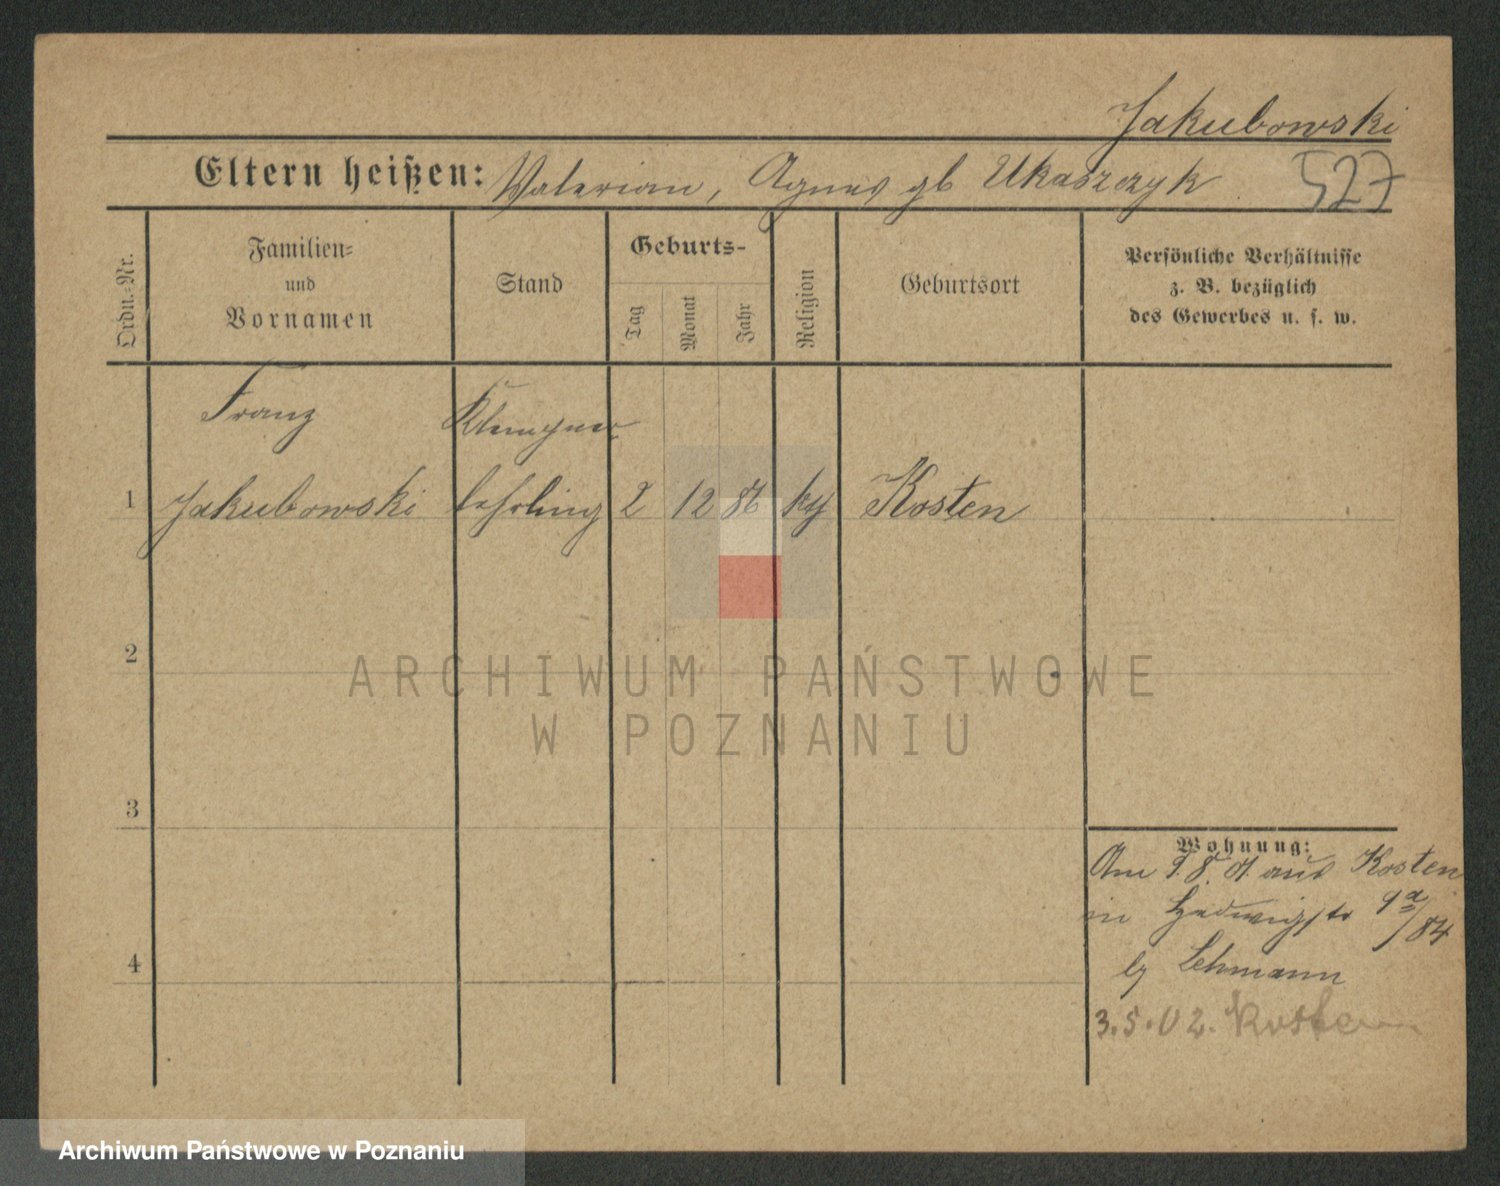 Jakubowski
Eltern heißen: Valerian, Agnes gb Ukaszczyk 527
Ordn.-Nr.
Familien-
und
Vornamen
Stand
Geburts-
Tag
Monat
Jahr
Religion
Geburtsort
Persönliche Verhältnisse
z. B. bezüglich
des Gewerbes u. s. w.
Franz Klempner
1 Jakubowski lehrling 2 12 86 Kosten
2
ARCHIWUM PAŃSTWOWE
W POZNANIU
3
Wohnung:
Am 9. 8. 01. aus Kosten
in Hedwigstr 9a/84
Lehmann
4
3.5.02. Kosten
Archiwum Państwowe w Poznaniu